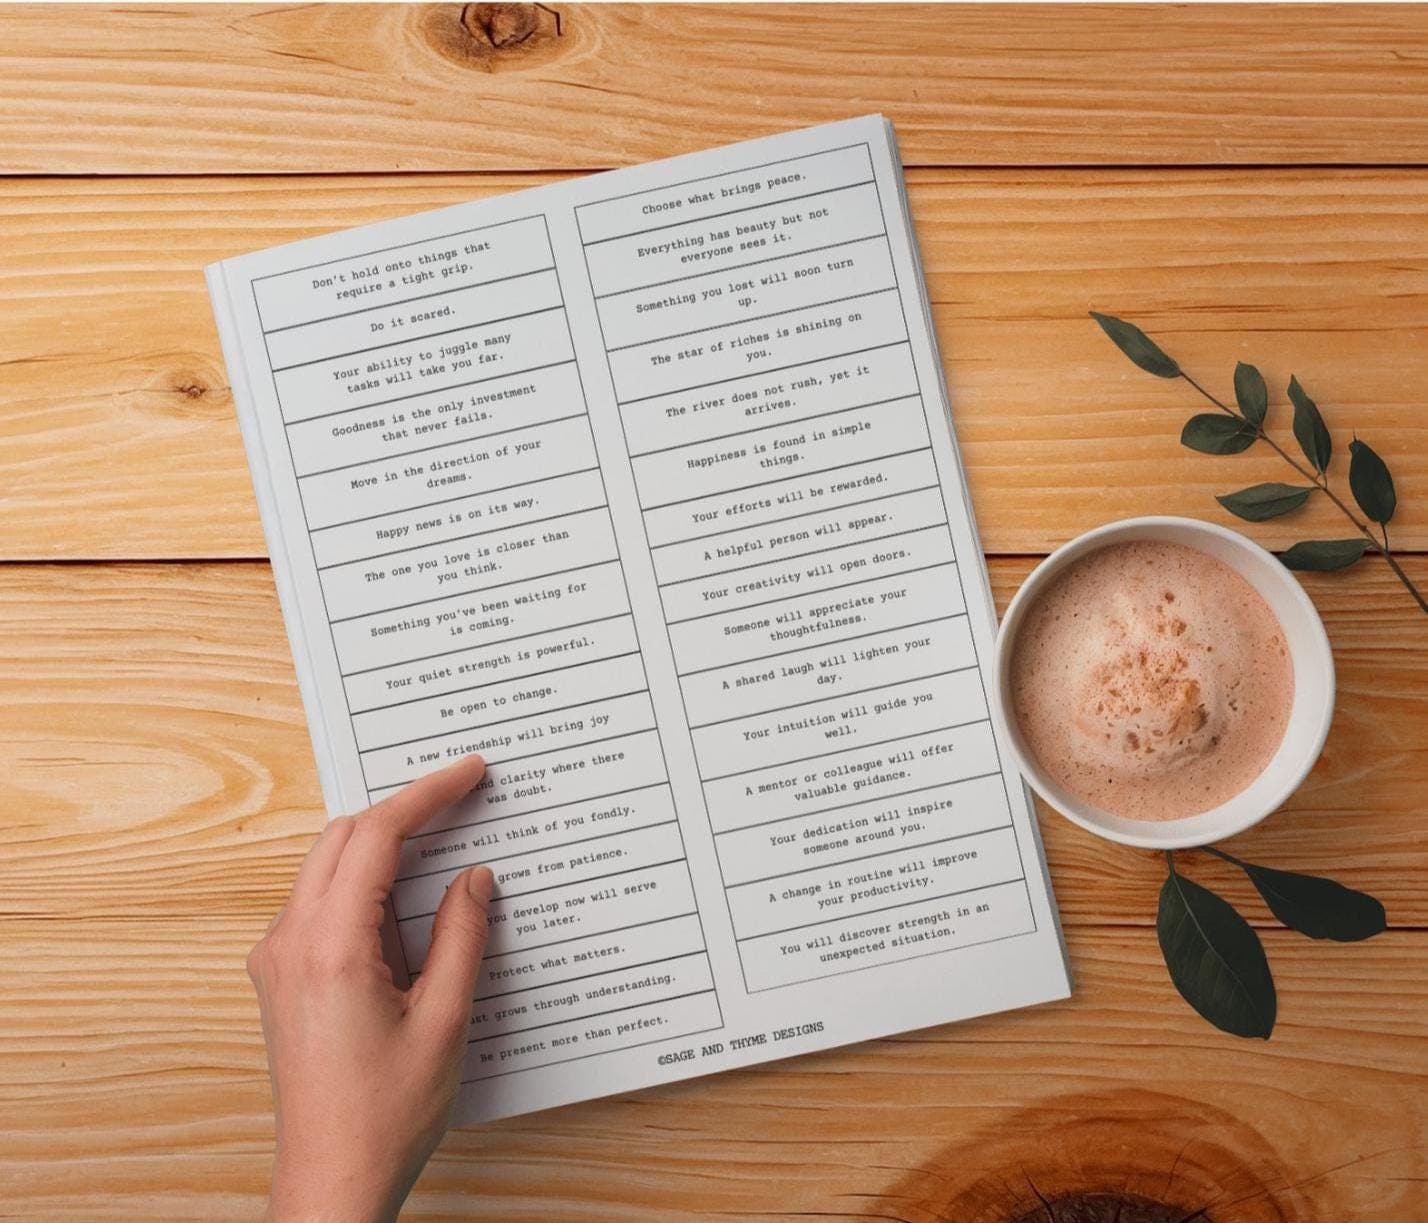 Don't hold onto things that
require a tight grip.
Do it scared.
Your ability to juggle many
tasks will take you far.
Goodness is the only investment
that never fails.
Move in the direction of your
dreams.
Happy news is on its way.
The one you love is closer than
you think.
Something you've been waiting for
is coming.
Your quiet strength is powerful.
Be open to change.
A new friendship will bring joy
clarity where there
was doubt.
Someone will think of you fondly.
grows from patience.
you develop now will serve
you later.
Protect what matters.
grows through understanding.
Be present more than perfect.
Choose what brings peace.
Everything has beauty but not
everyone sees it.
Something you lost will soon turn
up.
The star of riches is shining on
you.
The river does not rush, yet it
arrives.
Happiness is found in simple
things.
Your efforts will be rewarded.
A helpful person will appear.
Your creativity will open doors.
Someone will appreciate your
thoughtfulness.
A shared laugh will lighten your
day.
Your intuition will guide you
well.
A mentor or colleague will offer
valuable guidance.
Your dedication will inspire
someone around you.
A change in routine will improve
your productivity.
You will discover strength in an
unexpected situation.
©SAGE AND THYME DESIGNS